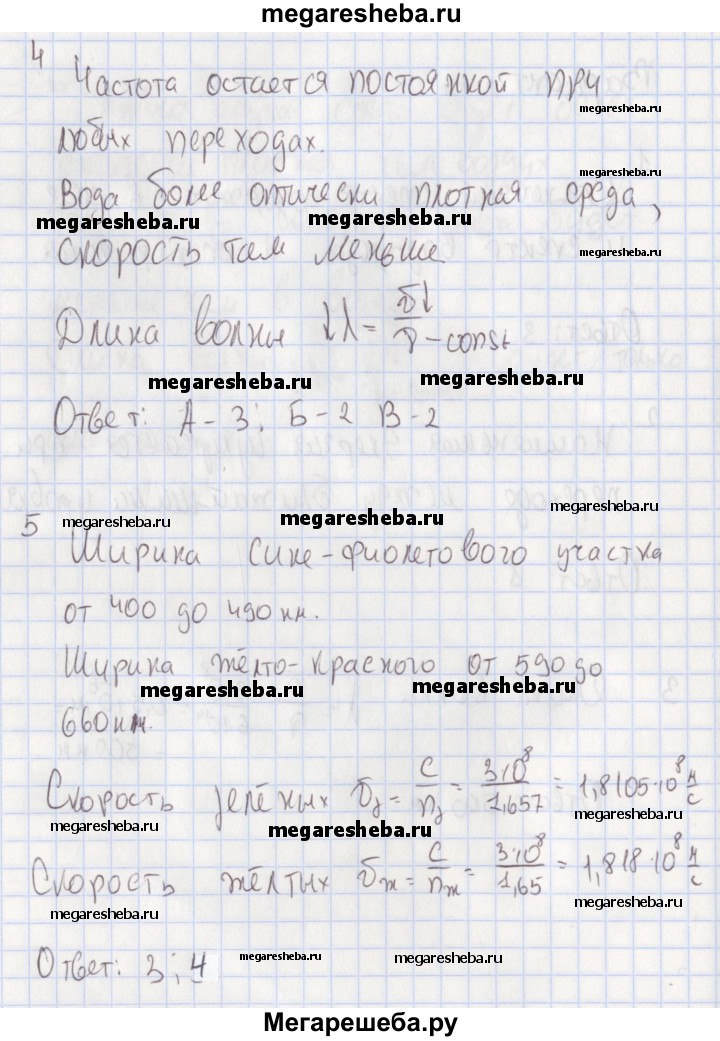 megaresheba.ru
4 Частота остается постоянной при
megaresheba.ru
любых переходах.
megaresheba.ru
Вода более оптически плотная среда,
megaresheba.ru megaresheba.ru
скорость там меньше megaresheba.ru
Длина волны ↓λ = v↓/ν - const
megaresheba.ru megaresheba.ru
Ответ: А - 3; Б - 2 В - 2
5 megaresheba.ru megaresheba.ru megaresheba.ru
Ширина сине-фиолетового участка
от 400 до 490 нм.
Ширина жёлто-красного от 590 до
megaresheba.ru megaresheba.ru
660 нм.
Скорость зелёных v_з = c/n_з = 3·10⁸/1,657 = 1,8105·10⁸ м/с
megaresheba.ru megaresheba.ru megaresheba.ru
Скорость жёлтых v_ж = c/n_ж = 3·10⁸/1,65 = 1,818·10⁸ м/с
megaresheba.ru megaresheba.ru
Ответ: 3; 4 megaresheba.ru megaresheba.ru
Мегарешеба.ру